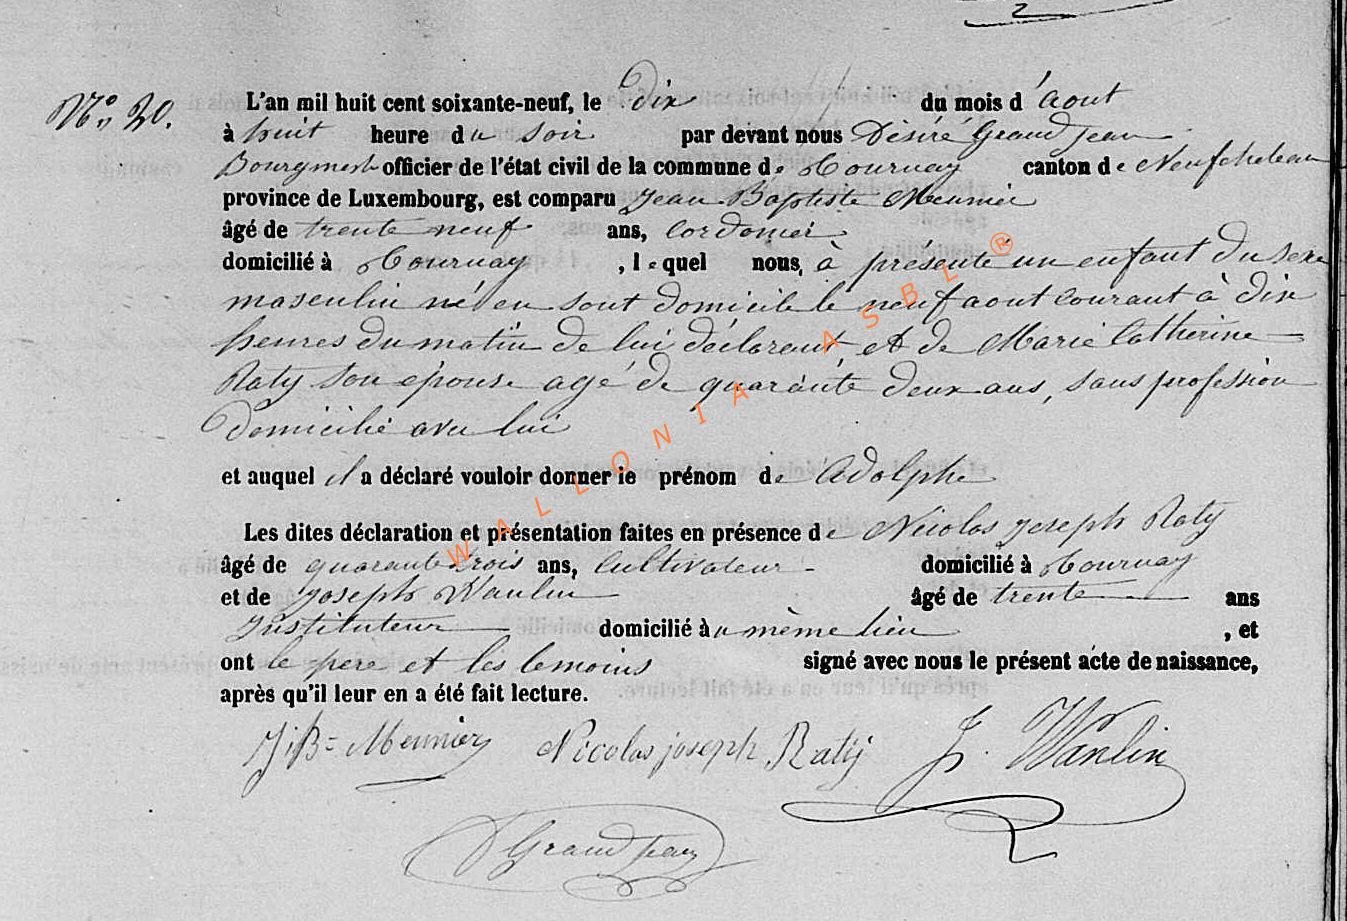 N° 20.
L'an mil huit cent soixante-neuf, le dix du mois d'aout
à huit heure du soir par devant nous Désiré Grandjean
Bourgmestre officier de l'état civil de la commune de Tournay canton de Neufchateau
province de Luxembourg, est comparu Jean Baptiste Meunier
âgé de trente neuf ans, cordonnier
domicilié à Tournay, lequel nous, à présenté un enfant du sexe
masculin né en sont domicile le neuf aout courant à dix
heures du matin de lui déclarant, et de Marie Catherine
Raty son épouse agé de quarante deux ans, sans profession
domicilié avec lui
et auquel il a déclaré vouloir donner le prénom de Adolphe
Les dites déclaration et présentation faites en présence de Nicolas Joseph Raty
âgé de quarante trois ans, cultivateur domicilié à Tournay
et de Joseph Wanlin âgé de trente ans
Instituteur domicilié au même lieu, et
ont le père et les temoins signé avec nous le présent acte de naissance,
après qu'il leur en a été fait lecture.
J. B= Meunier Nicolas joseph Raty J. Wanlin
D Grandjean
WALLONIA ASBL ®